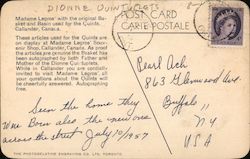 DIONNE QUINTUPLETS
Madame Legros' with the original Basket and Rosin used by the Quints. Callander, Canada.
These articles used for the Quints are on display at Madame Legros' Souvenir Shop, Callander, Canada. As proof the articles are genuine the Basket has been autographed by both Father and Mother of the Dionne Quintuplets. While in Callander you are cordially invited to visit Madame Legros', all your questions about the Quints will be cheerfully answered. Autographing free.
POST CARD
CARTE POSTALE
Pearl Ach
863 Glenwood Ave
Buffalo
NY
USA
Seen the home they
were Born also the new one
across the street July/10/1957
THE PHOTOGELATINE ENGRAVING CO., TORONTO.